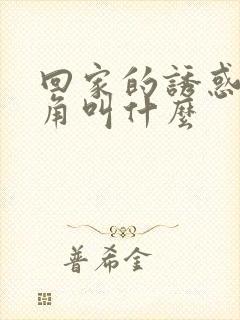 回家的誘惑
角叫什麼
普希金